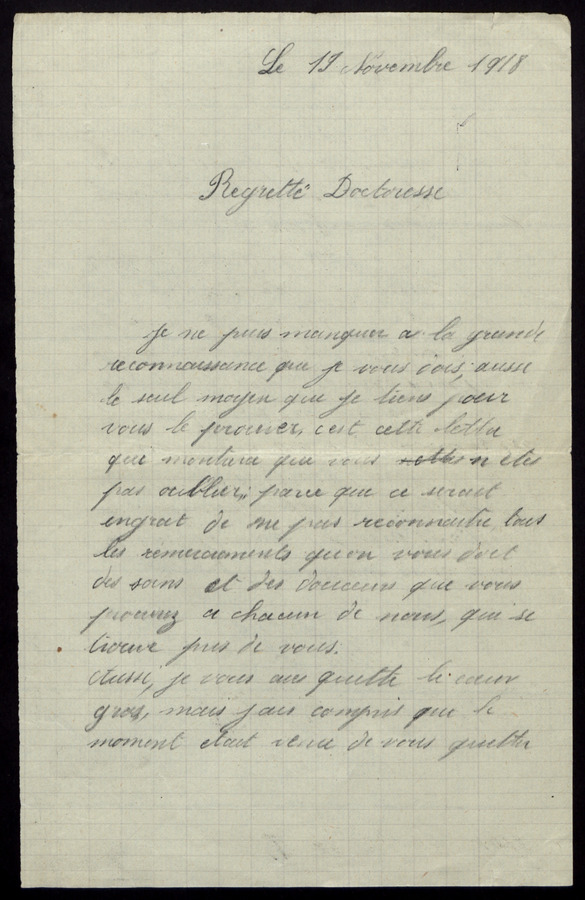 Le 19 Novembre 1918
Regretté Doctoresse
Je ne puis manquer a la grande
reconnaissance que je vous dois; aussi
le seul moyen que je tiens pour
vous le prouver, c'est cette lettre
que montrera que vous n'etes
pas oublier, parce que ce serait
engrat de ne pas reconnaitre tous
les remerciements qu'on vous doit
des soins et des douceurs que vous
procurez a chacun de nous, qui se
trouve pres de vous.
Aussi, je vous ais quitte le cœur
gros, mais j'ais compris que le
moment etait venu de vous quitter